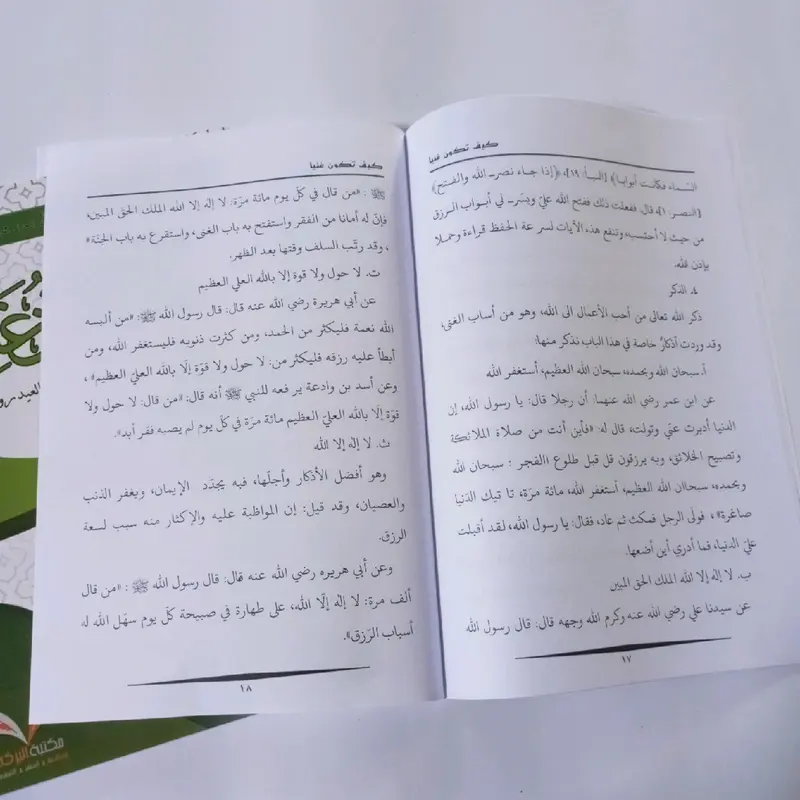 كيف تكون غنيا
السّماء فكانت أبوابا﴾ [النبأ: ١٩]، ﴿إذا جاء نصر الله والفتح﴾
[النصر: ١]، قال: ففعلت ذلك ففتح الله عليّ ويسّر لي أبواب الرزق
من حيث لا أحتسب، وتنفع هذه الآيات لسرعة الحفظ قراءة وحملا
بإذن الله.
٤. الذكر
ذكر الله تعالى من أحب الأعمال الى الله، وهو من أساب الغنى،
وقد وردت أذكارٌ خاصة في هذا الباب نذكر منها:
أ. سبحان الله وبحمده، سبحان الله العظيم، أستغفر الله
عن ابن عمر رضي الله عنهما: أن رجلا قال: يا رسول الله، إن
الدنيا أدبرت عنّي وتولت، قال له: «فأين أنت من صلاة الملائكة
وتصبيح الخلائق، وبه يرزقون قل قبل طلوع االفجر : سبحان الله
وبحمده، سبحاان الله العظيم، أستغفر الله، مائة مرّة، تا تيك الدّنيا
صاغرة» ، فولّى الرجل فمكث ثم عاد، فقال: يا رسول الله، لقد أقبلت
عليّ الدنيا، فما أدري أين أضعها.
ب. لا إله إلا الله الملك الحق المبين
عن سيدنا علي رضي الله عنه وكرم الله وجهه قال: قال رسول الله
١٧
كيف تكون غنيا
ﷺ : «من قال في كلّ يوم مائة مرّة: لا إله إلا الله الملك الحق المبين،
فإنّ له أمانا من الفقر واستفتح به باب الغنى، واستقرع به باب الجنّة»
، وقد رتّب السلف وقتها بعد الظهر.
ت. لا حول ولا قوة إلا بالله العلي العظيم
عن أبي هريرة رضي الله عنه قال: قال رسول الله ﷺ: «من ألبسه
الله نعمة فليكثر من الحمد، ومن كثرت ذنوبه فليستغفر الله، ومن
أبطأ عليه رزقه فليكثر من: لا حول ولا قوّة إلّا بالله العليّ العظيم» ،
وعن أسد بن وادعة ير فعه للنبي ﷺ أنه قال: «من قال: لا حول ولا
قوّة إلّا بالله العليّ العظيم مائة مرّة في كلّ يوم لم يصبه فقر أبد».
ث. لا إله إلا الله
وهو أفضل الأذكار وأجلّها، فبه يجدّد الإيمان، ويغفر الذنب
والعصيان، وقد قيل: إن المواظبة عليه والإكثار منه سبب لسعة
الرزق.
وعن أبي هريره رضي الله عنه قال: قال رسول الله ﷺ : «من قال
ألف مرة: لا إله إلّا الله، على طهارة في صبيحة كلّ يوم سهّل الله له
أسباب الرّزق».
١٨
العيدرو
مكتبة البركة